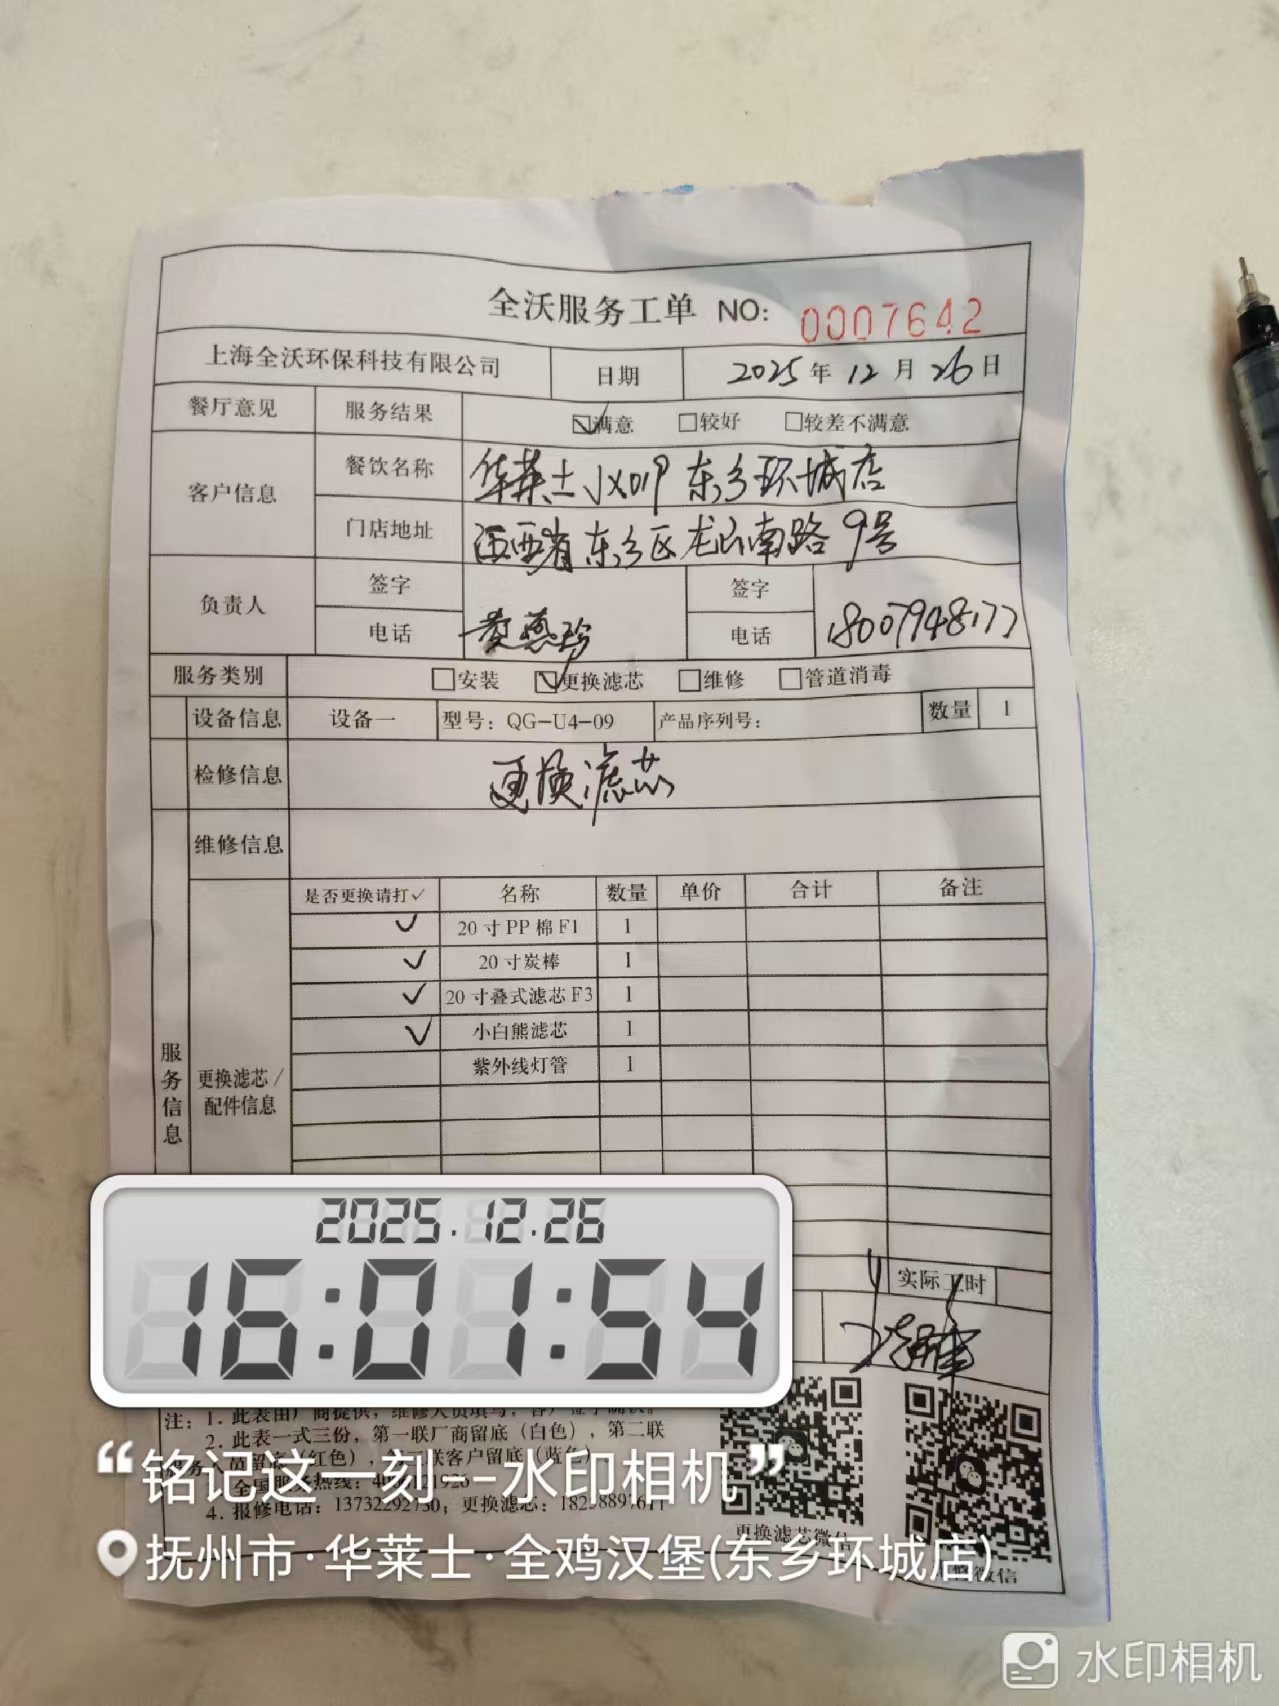 全沃服务工单 NO: 0007642
上海全沃环保科技有限公司 日期 2025年12月26日
餐厅意见 服务结果 ☑满意 □较好 □较差不满意
客户信息 餐饮名称 华莱士 东乡环城店
门店地址 江西省东乡区龙山南路9号
负责人 签字 签字
电话 燕珍 电话 18007948177
服务类别 □安装 ☑更换滤芯 □维修 □管道消毒
设备信息 设备一 型号：QG-U4-09 产品序列号： 数量 1
检修信息 更换滤芯
维修信息
服务信息
更换滤芯/配件信息
是否更换请打✓ 名称 数量 单价 合计 备注
✓ 20寸PP棉F1 1
✓ 20寸炭棒 1
✓ 20寸叠式滤芯F3 1
✓ 小白熊滤芯 1
紫外线灯管 1
实际工时
2025.12.26
16:01:54
注：1. 此表由厂商提供，维修人员填写，
2. 此表一式三份，第一联厂商留底（白色），第二联
（红色），联客户留底（蓝色）
全国服务热线：
4. 报修电话：13732292730；更换滤芯：
更换滤芯微信
微信
“铭记这一刻--水印相机”
抚州市·华莱士·全鸡汉堡(东乡环城店)
水印相机